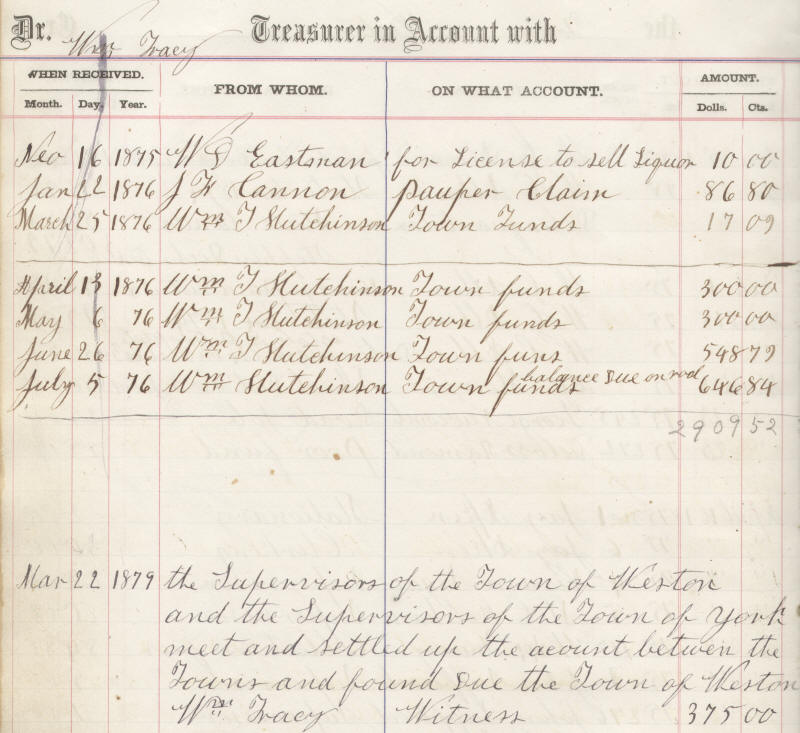 Dr. Treasurer in Account with
Wm Tracy
WHEN RECEIVED. FROM WHOM. ON WHAT ACCOUNT. AMOUNT.
Month. Day. Year. Dolls. Cts.
Nov 16 1875 W D Eastman for License to sell Liquor 10 00
Jan 22 1876 J W Cannon pauper Claim 86 80
March 25 1876 Wm T Hutchinson Town Funds 17 09
April 13 1876 Wm T Hutchinson Town funds 300 00
May 6 76 Wm T Hutchinson Town funds 300 00
June 26 76 Wm T Hutchinson Town funs 548 79
July 5 76 Wm Hutchinson Town funds balance Due on rod 646 84
2909 52
Mar 22 1879 the Supervisors of the Town of Weston
and the Supervisors of the Town of York
meet and settled up the acount betwen the
Towns and found Due the Town of Weston
Wm Tracy Witness 375 00